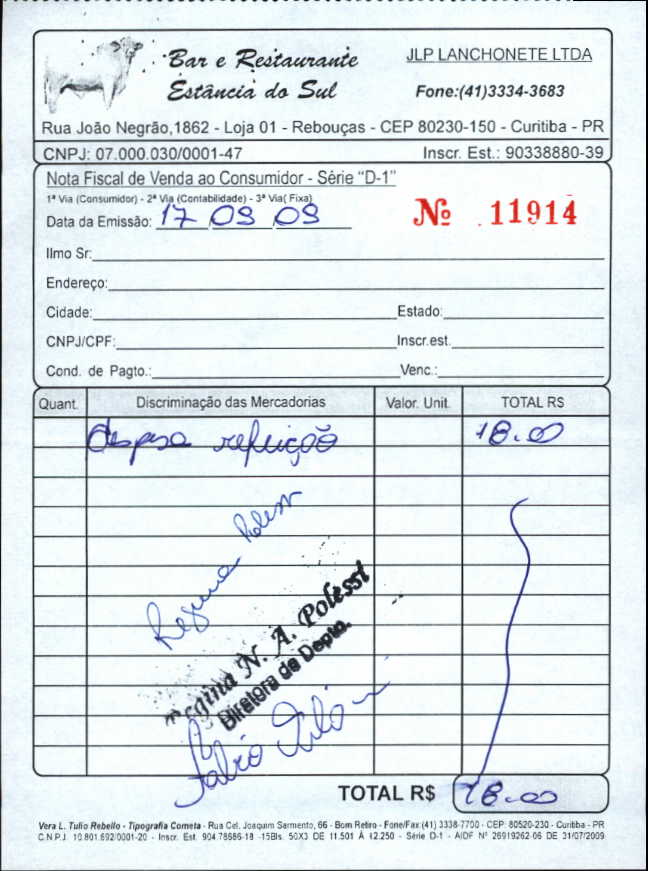 Bar e Restaurante
Estância do Sul
JLP LANCHONETE LTDA
Fone:(41)3334-3683
Rua João Negrão,1862 - Loja 01 - Rebouças - CEP 80230-150 - Curitiba - PR
CNPJ: 07.000.030/0001-47 Inscr. Est.: 90338880-39
Nota Fiscal de Venda ao Consumidor - Série "D-1"
1ª Via (Consumidor) - 2ª Via (Contabilidade) - 3ª Via( Fixa)
Data da Emissão: 17 09 09
Nº 11914
Ilmo Sr:
Endereço:
Cidade: Estado:
CNPJ/CPF: Inscr.est.
Cond. de Pagto.: Venc.:
Quant. Discriminação das Mercadorias Valor. Unit. TOTAL R$
despesa refeição 18.00
Regina Poless
Regina N. A. Polessi
Diretora de Depto.
Fabio
TOTAL R$ 18.00
Vera L. Tulio Rebello - Tipografia Cometa - Rua Cel. Joaquim Sarmento, 66 - Bom Retiro - Fone/Fax:(41) 3338-7700 - CEP: 80520-230 - Curitiba - PR
C.N.P.J. 10.801.692/0001-20 - Inscr. Est. 904.78686-18 -15Bls. 50X3 DE 11.501 À 12.250 - Série D-1 - AIDF Nº 26919262-06 DE 31/07/2009